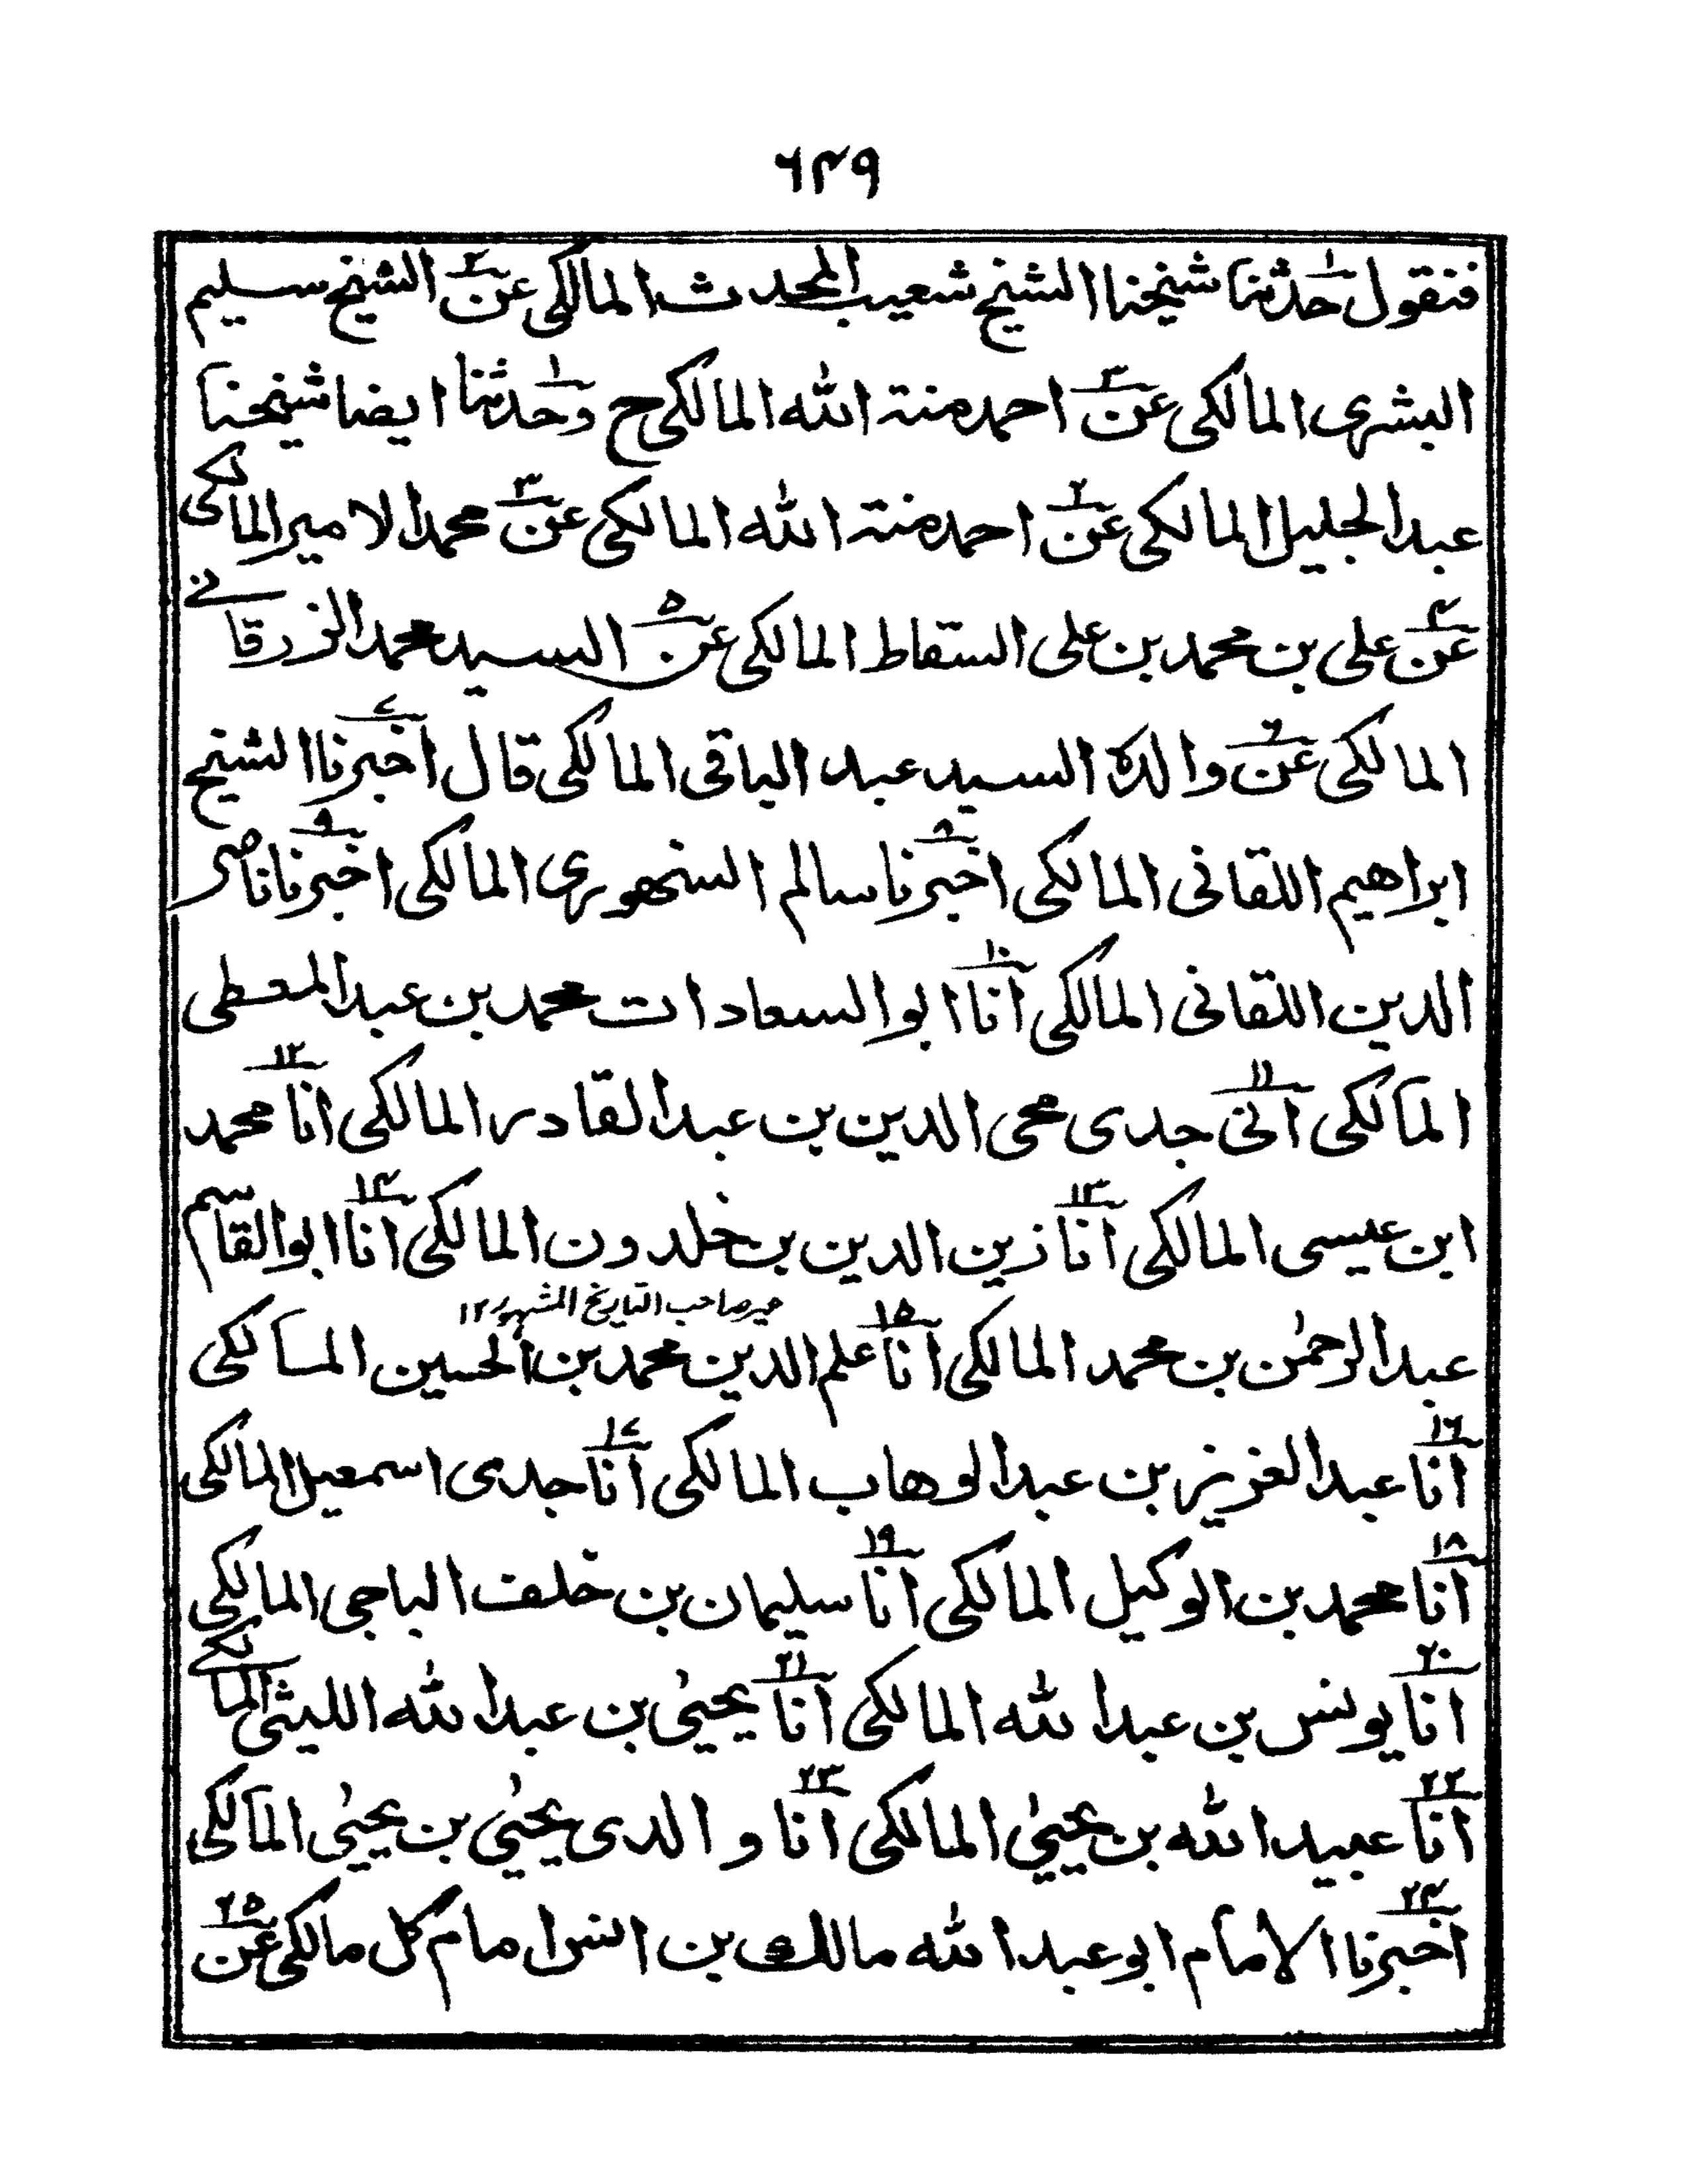 ٦٤٩
فنقول حدثنا شيخنا الشيخ شعيب المحدث المالكي عن الشيخ سليم
البشري المالكي عن احمد منة الله المالكي ح وحدثنا ايضا شيخنا
عبد الجليل المالكي عن احمد منة الله المالكي عن محمد الامير المالكي
عن علي بن محمد بن علي السقاط المالكي عن السيد محمد الزرقاني
المالكي عن والده السيد عبد الباقي المالكي قال اخبرنا الشيخ
ابراهيم اللقاني المالكي اخبرنا سالم السنهوري المالكي اخبرنا ناصر
الدين اللقاني المالكي انا ابو السعادات محمد بن عبد المعطي
المالكي اني جدي محي الدين بن عبد القادر المالكي انا محمد
ابن عيسى المالكي انا زين الدين بن خلدون المالكي انا ابو القاسم
صاحب التاريخ المشهور ١٢
عبد الرحمٰن بن محمد المالكي انا علم الدين محمد بن الحسين المالكي
انا عبد العزيز بن عبد الوهاب المالكي انا جدي اسمعيل المالكي
انا محمد بن الوكيل المالكي انا سليمان بن خلف الباجي المالكي
انا يونس بن عبد الله المالكي انا يحيىٰ بن عبد الله الليثي المالكي
انا عبيد الله بن يحيىٰ المالكي انا والدي يحيىٰ بن يحيىٰ المالكي
اخبرنا الامام ابو عبد الله مالك بن انس امام كل مالكي عن